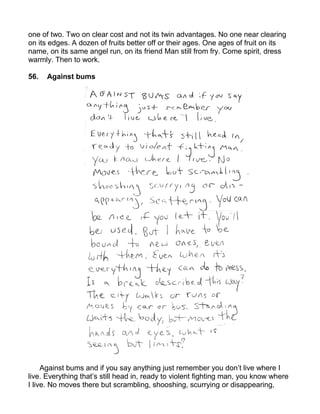 one of two. Two on clear cost and not its twin advantages. No one near clearing
on its edges. A dozen of fruits better off or their ages. One ages of fruit on its
name, on its same angel run, on its friend Man still from fry. Come spirit, dress
warmly. Then to work.
56. Against bums
AGAINST BUMS and if you say
anything just remember you
don't live where I live.
Everything that's still head in,
ready to violent fighting man.
You know where I live. No
Moves there but scrambling,
shooshing scurrying or dis-
appearing, scattering. You can
be nice if you let it. You'll
be used. But I have to be
bound to new ones, even
with them. Even when it's
everything they can do to mess,
Is a break described this way?
The city walks or runs or
moves by car or bus. Standing
waits the body, but moves the
hands and eyes, what is
seeing but limits?
Against bums and if you say anything just remember you don't live where I
live. Everything that's still head in, ready to violent fighting man, you know where
I live. No moves there but scrambling, shooshing, scurrying or disappearing,